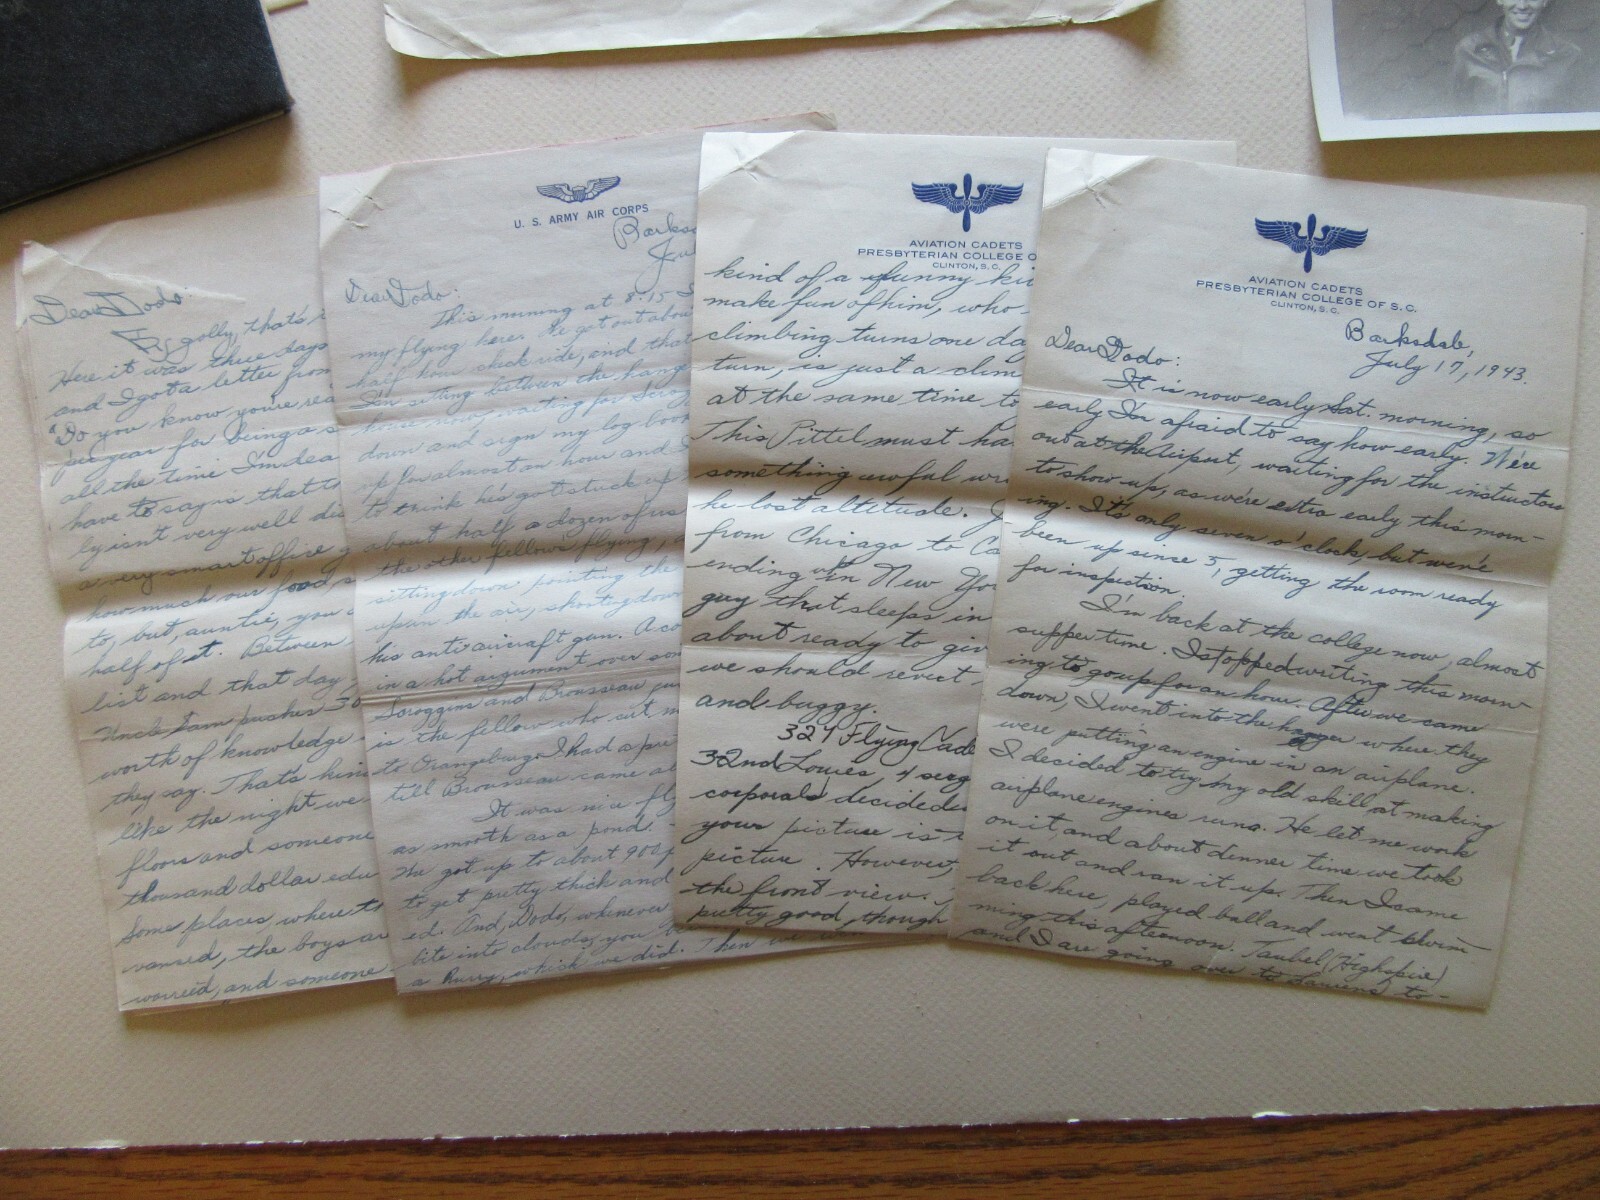 Dear Dodo
By golly, that's
Here it was three days
and I got a letter from
"Do you know you're
per year for being a
all the time I'm
have to say is that
ly isn't very well
a very smart office
how much our food,
to, but, auntie, you
half of it. Between
list and that day
Uncle Sam pushes
worth of knowledge
they say. That's
like the night we
floors and someone
thousand dollar edu
Some places where
the boys
worried, and someone
U. S. ARMY AIR CORPS
Dear Dodo:
This morning at 8:15
my flying here. He got out about
half hour check ride, and that
I'm sitting between the
house now, waiting for
down and sign my log book
up for almost an hour and
to think he's got stuck up
about half a dozen of us
the other fellows flying,
sitting down pointing the
up in the air, shooting down
his anti aircraft gun. A
in a hot argument over
Scroggins and Brousseau
is the fellow who
to Orangeburg. I had a
till Brousseau came
It was nice
as smooth as a pond.
We got up to about 900
to get pretty thick and
ed. And, Dodo, whenever
bite into clouds, you
a hurry, which we did. Then we
AVIATION CADETS
PRESBYTERIAN COLLEGE O
CLINTON, S.C.
kind of a funny
make fun of him, who
climbing turns one da
turn, is just a
at the same time to
This Pittel must ha
something awful
he lost altitude.
from Chicago to Ca
ending in New Yo
guy that sleeps in
about ready to giv
we should
and buggy.
324 Flying Cade
32nd Louies, 4
corporals decided
your picture is
picture. However,
the front view.
pretty good, though
AVIATION CADETS
PRESBYTERIAN COLLEGE OF S.C.
CLINTON, S.C.
Barksdale,
July 17, 1943.
Dear Dodo:
It is now early Sat. morning, so
early I'm afraid to say how early. We're
out at the Airport, waiting for the instructors
to show up, as we're extra early this morn-
ing. It's only seven o'clock, but we've
been up since 5, getting the room ready
for inspection.
I'm back at the college now, almost
supper time. I stopped writing this morn-
ing to go up for an hour. After we came
down, I went into the hanger where they
were putting an engine in an airplane.
I decided to try my old skill at making
airplane engines run. He let me work
on it and about dinner time we took
it out and ran it up. Then I came
back here, played ball and went swim-
ming this afternoon. Taubel (Highspire)
and I are going over to to-